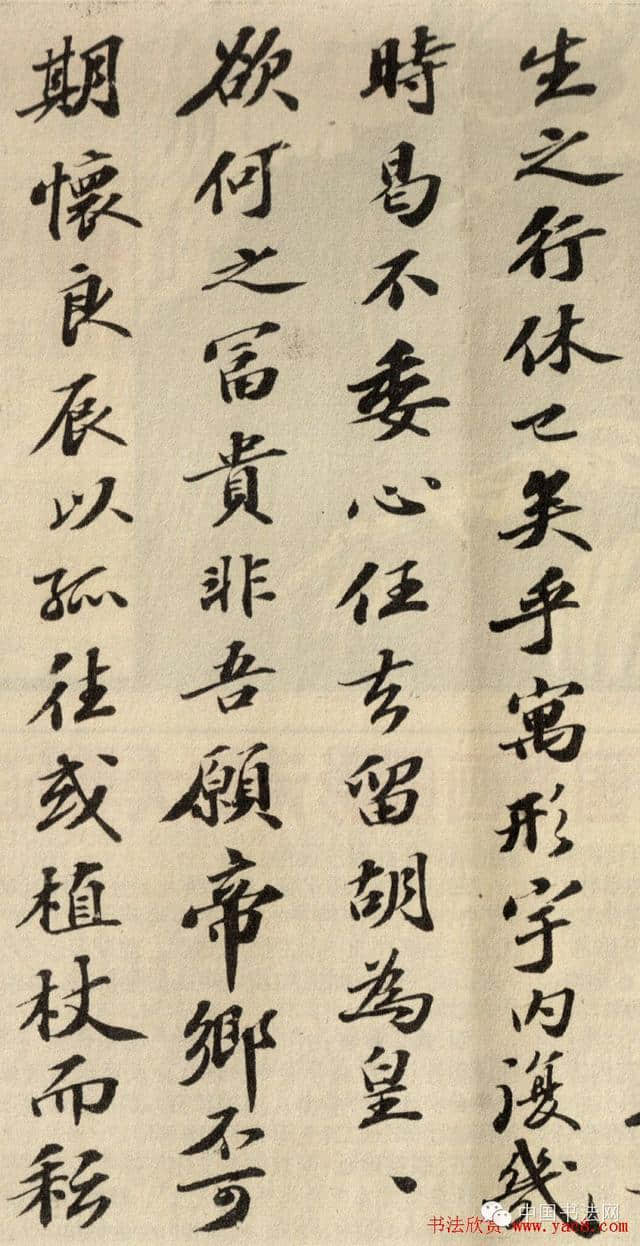 生之行休已矣乎寓形宇内復幾
時曷不委心任去留胡為皇、
欲何之富貴非吾願帝鄉不可
期懷良辰以孤往或植杖而耘
中国书法网
书法欣赏